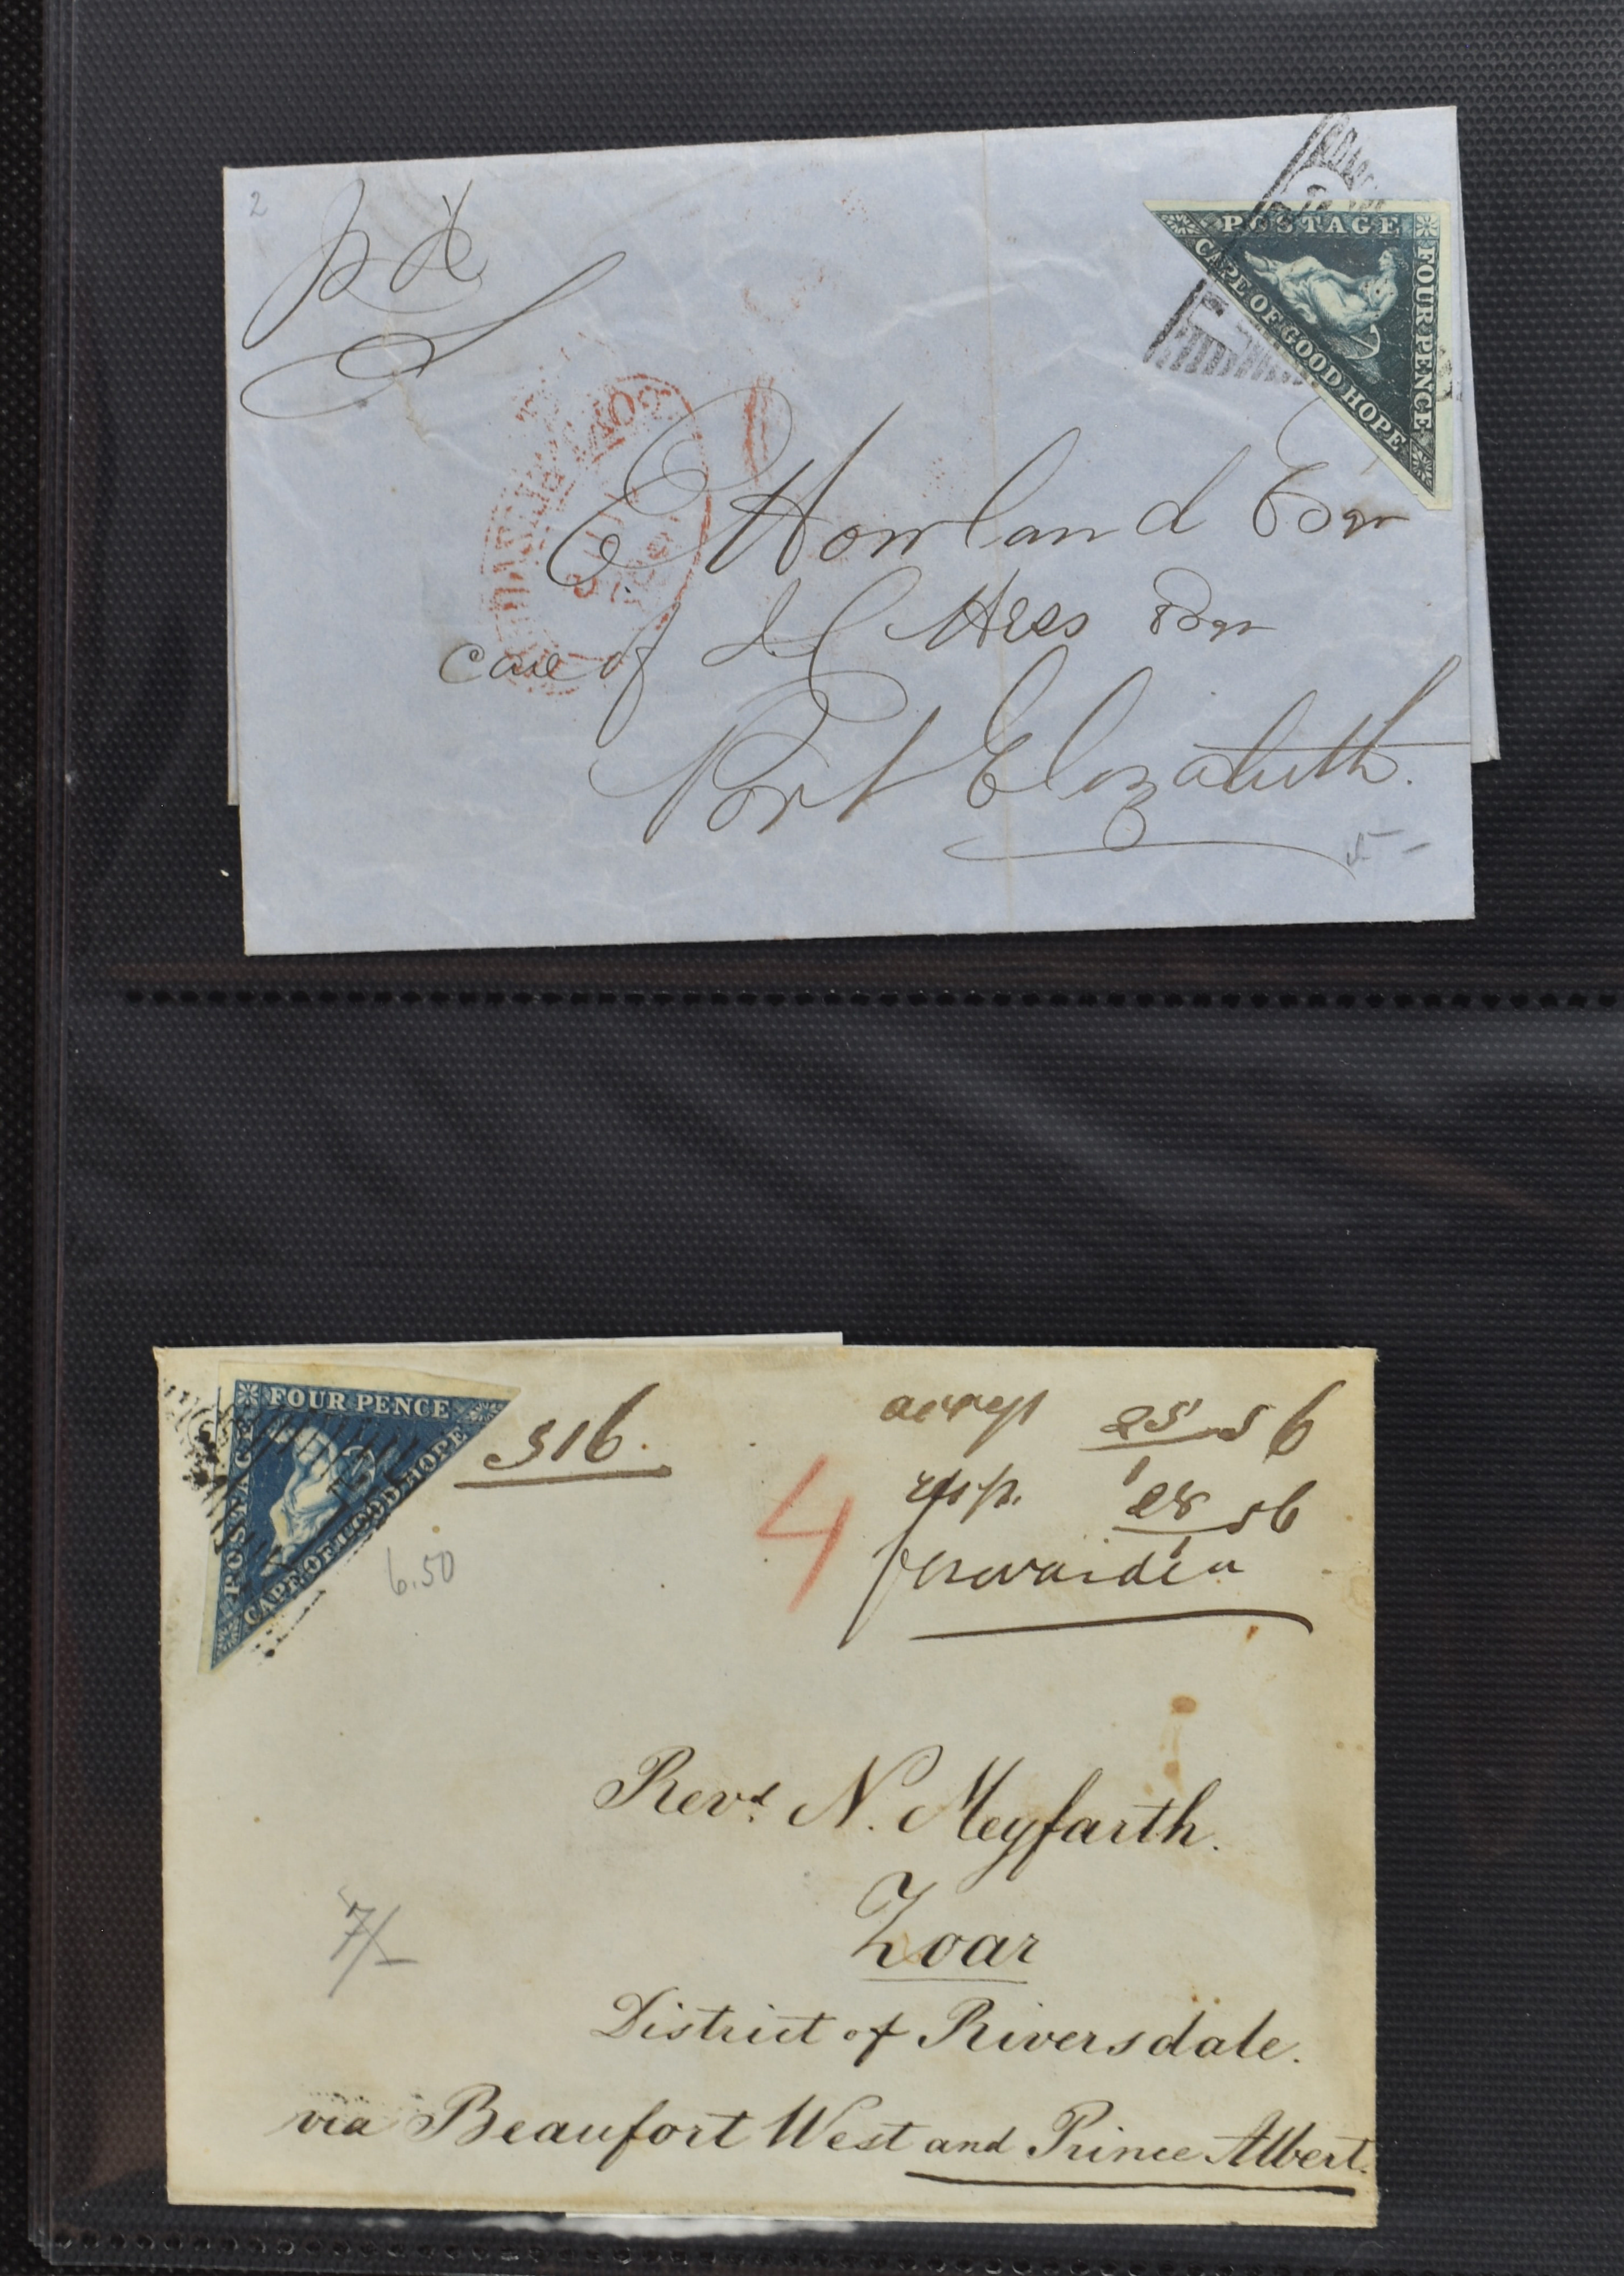 2
pd
POSTAGE
FOUR PENCE
CAPE OF GOOD HOPE
E Howland Esqr
care of J C Hess Esqr
Port Elizabeth.
5 -
FOUR PENCE
POSTAGE
CAPE OF GOOD HOPE
316.
6.50
4
accep 25/1 56
resp. 28/1 56
Revd. N. Meyfarth.
Zoar
7/-
District of Riversdale.
via Beaufort West and Prince Albert.